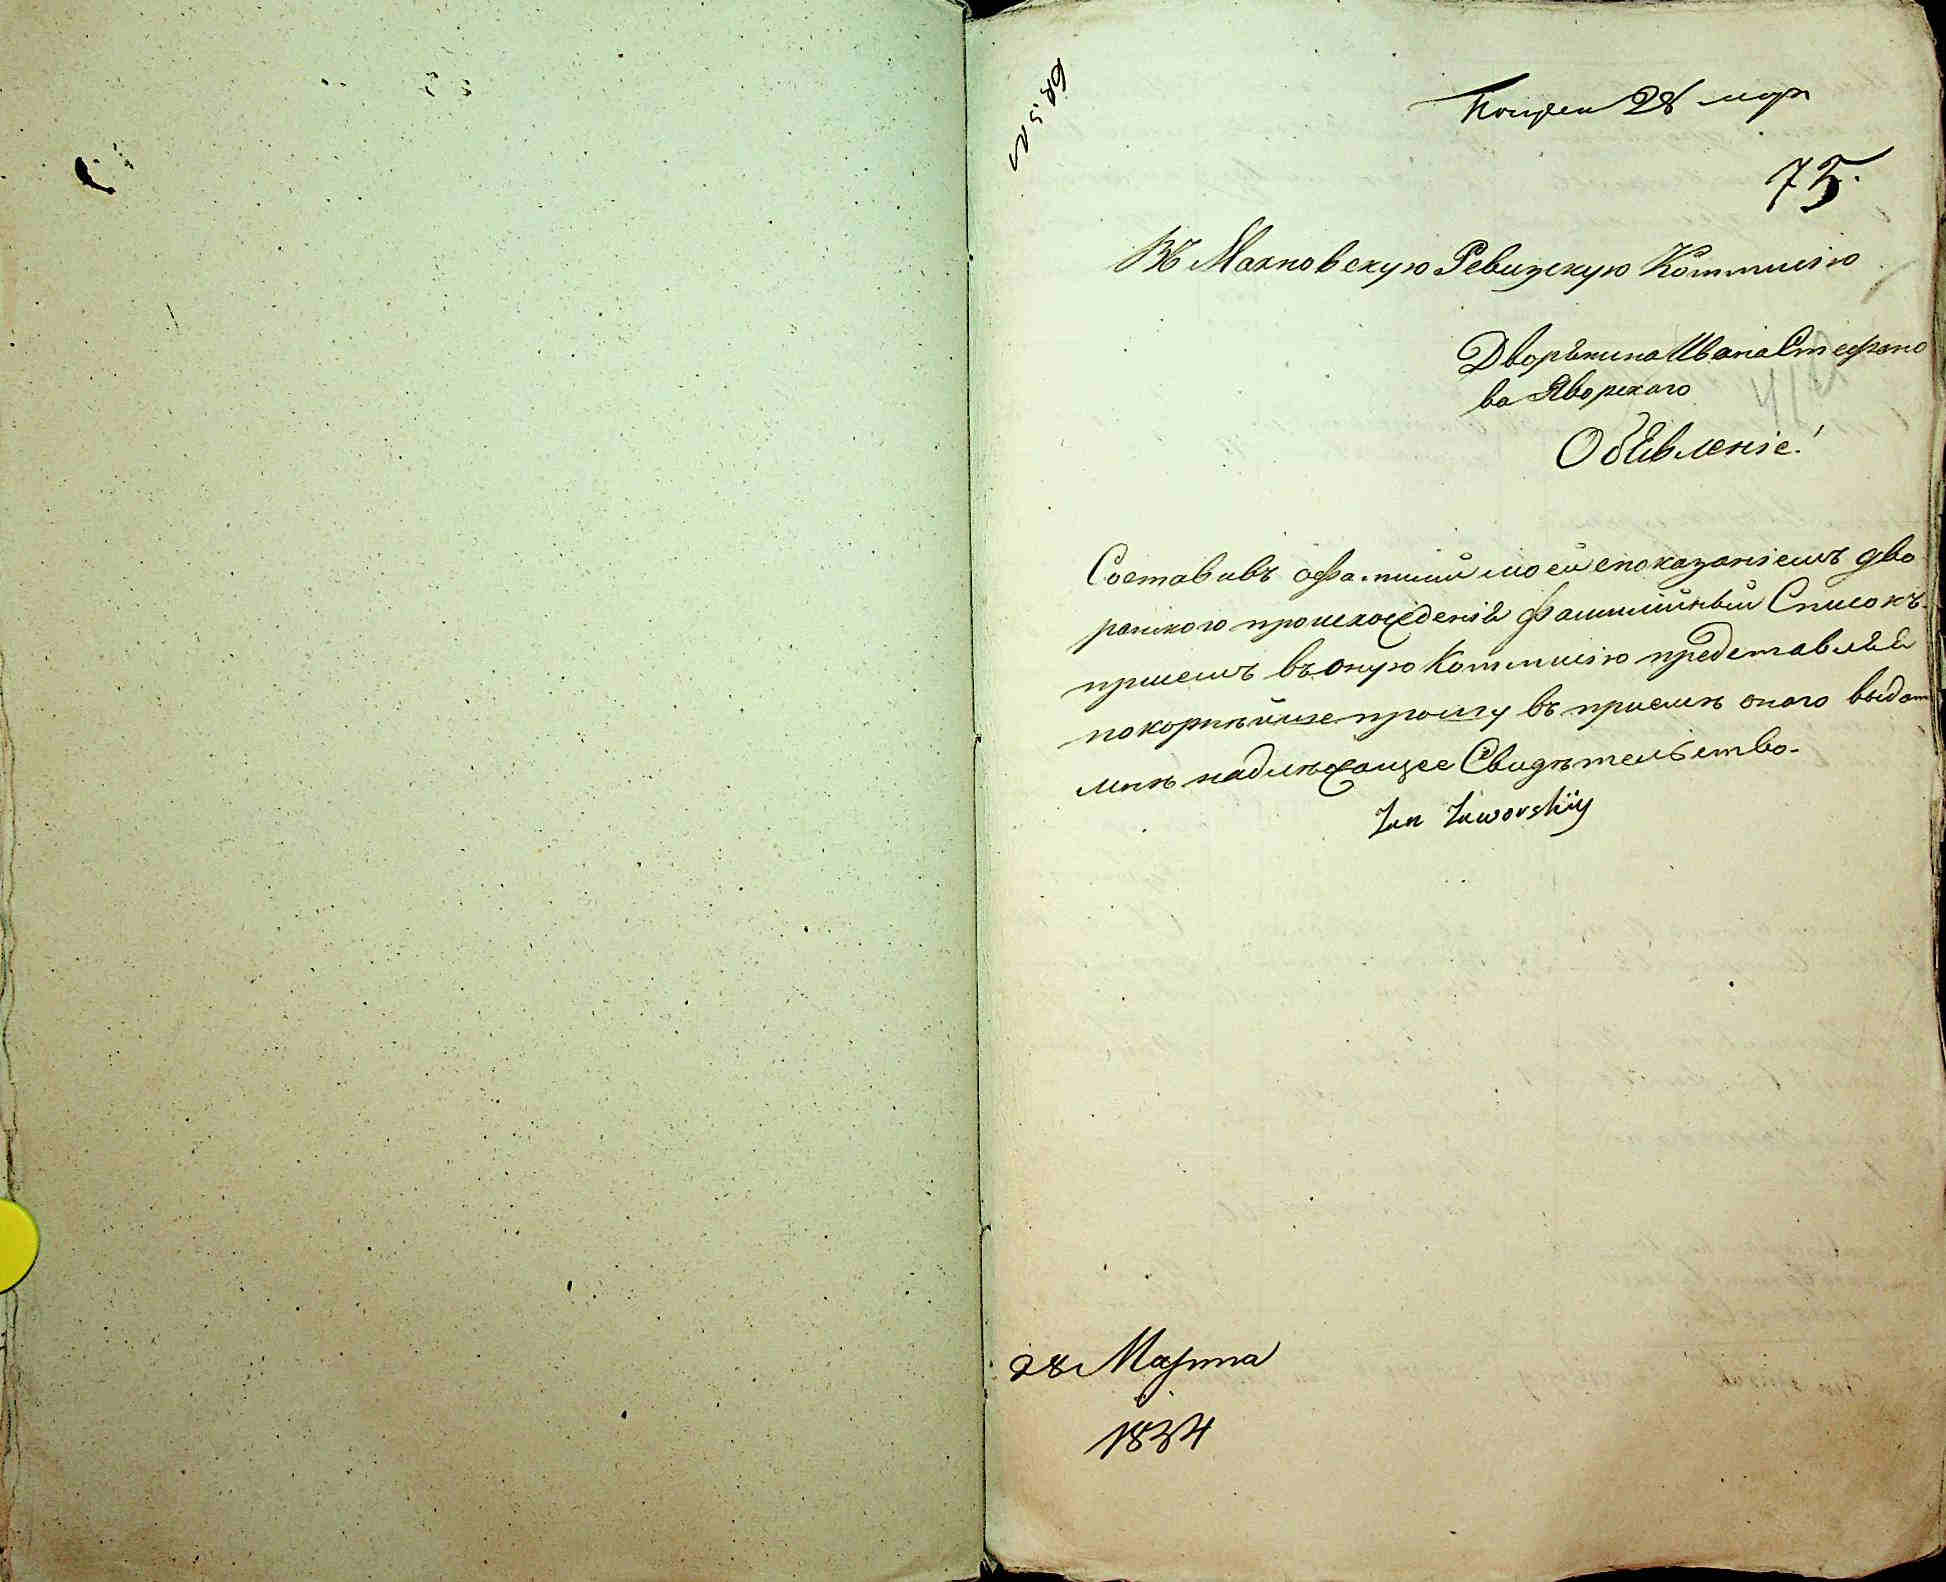 28 мар
75.
Въ Махновскую Ревизскую Коммисію
Дворянина Ивана Стефано
ва Яворскаго
Обявленіе!
Составивъ о фамилии моей споказаніемъ дво
ранского происхожденія фамилийный Списокъ.
присемъ въ оную Коммисію представляя
покорнейше прошу въ приемѣ оного выдат
мнѣ надлежащее Свидѣтельство.
Jan Jaworskiy
28 Марта
1834